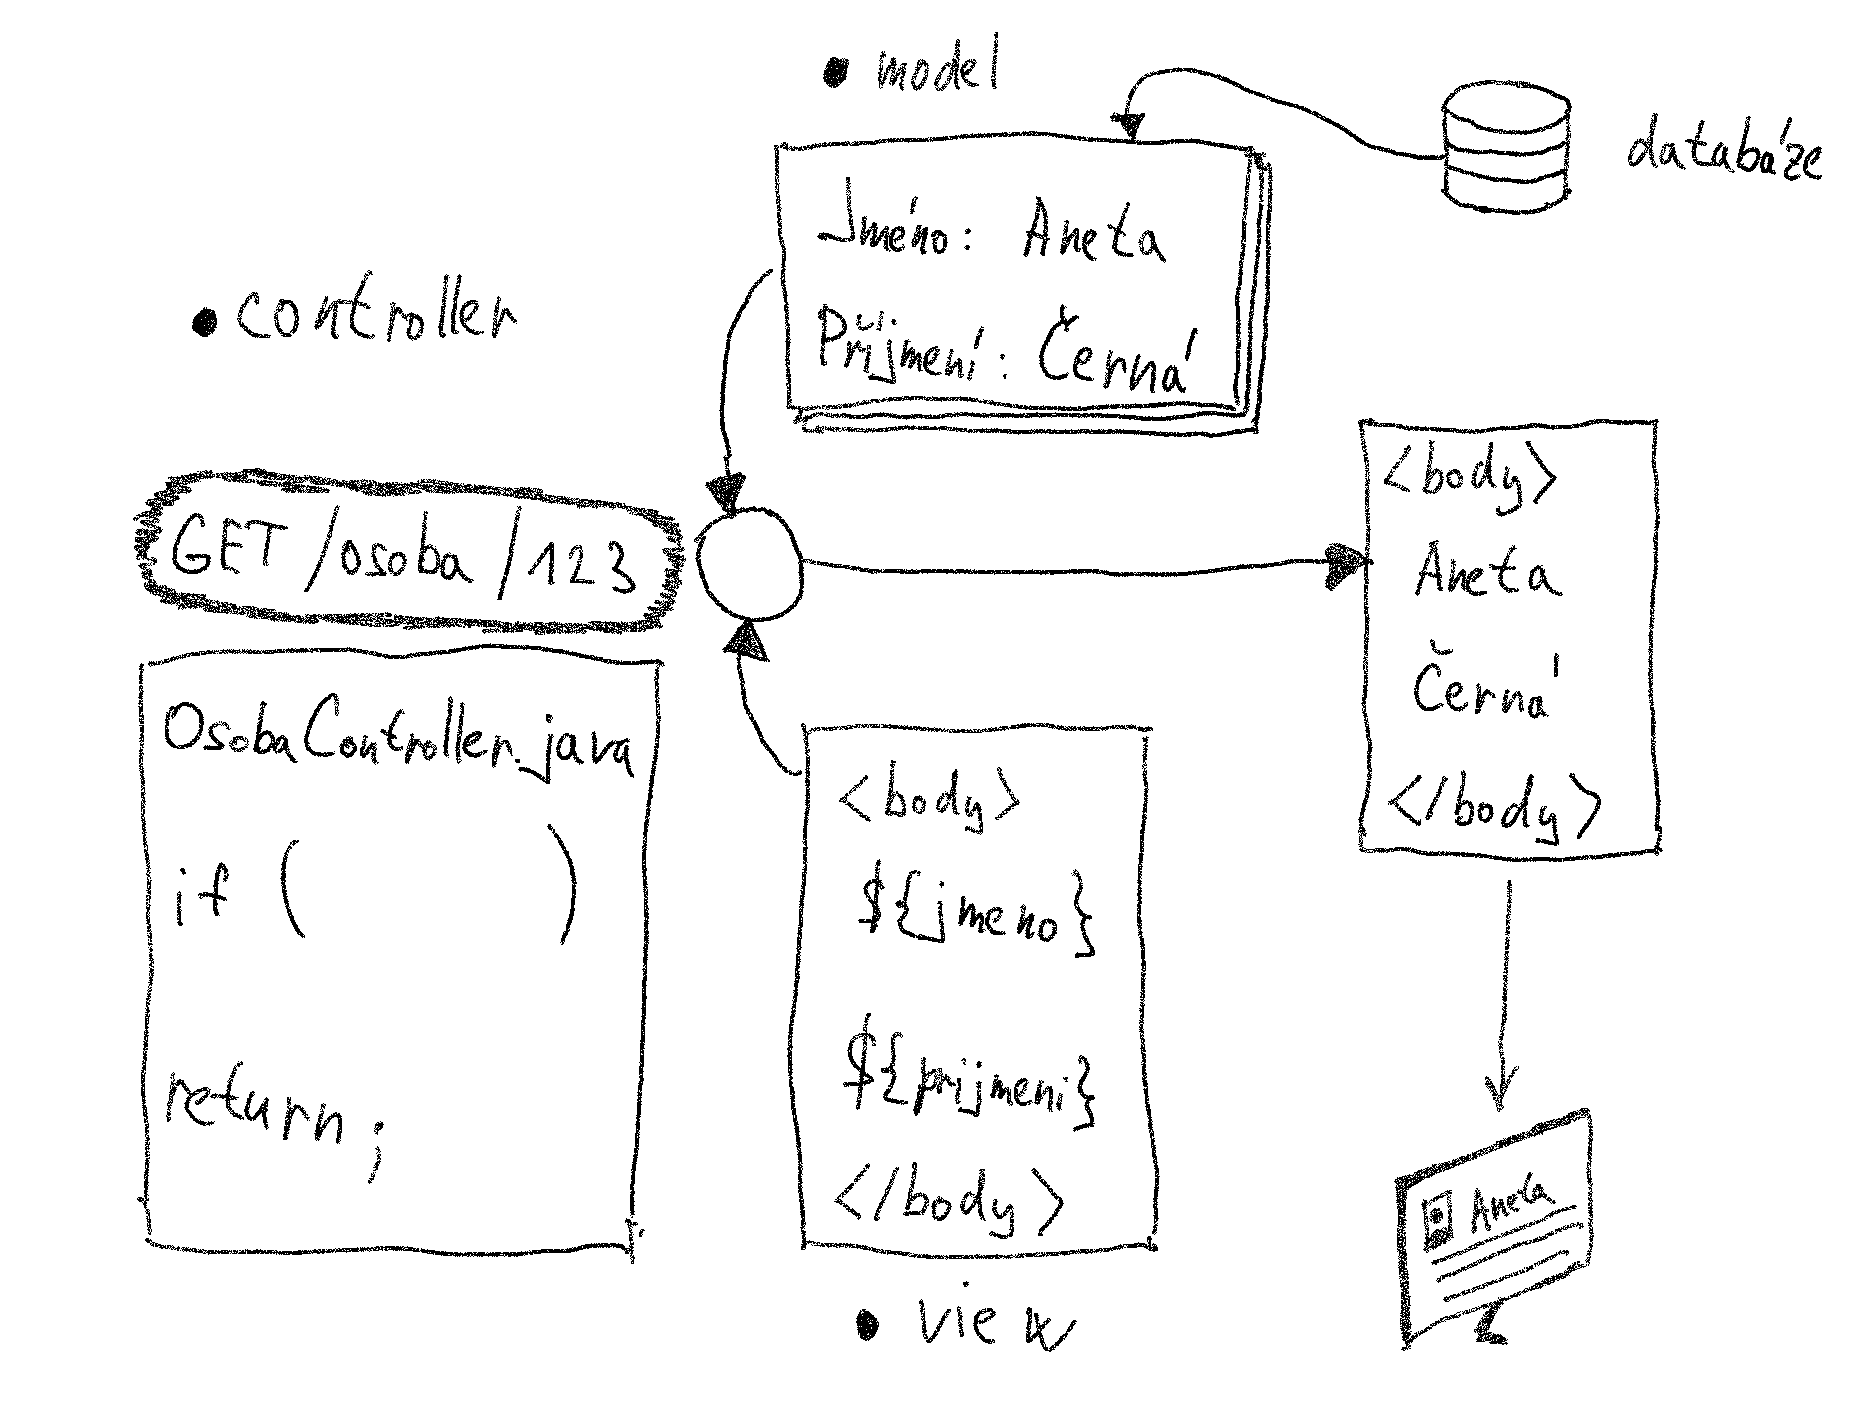 • model
databáze
Jméno: Aneta
Příjmení: Černá
• controller
GET /osoba/123
OsobaController.java
if (          )
return;
<body>
${jmeno}
${prijmeni}
</body>
• view
<body>
Aneta
Černá
</body>
Aneta